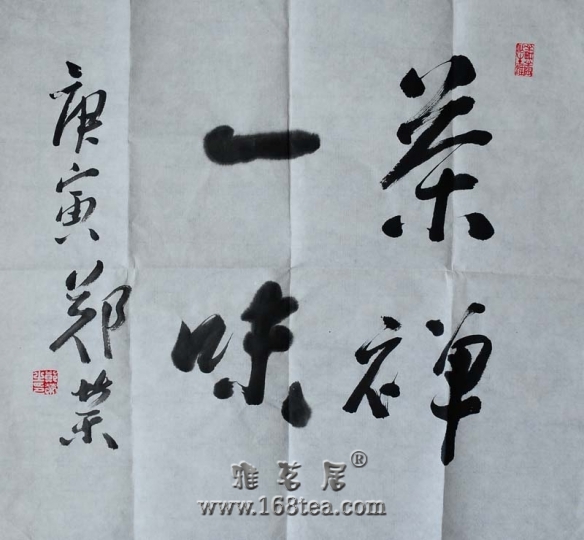 茶禅
一味
庚寅郑荣
雅茗居®
www.168tea.com